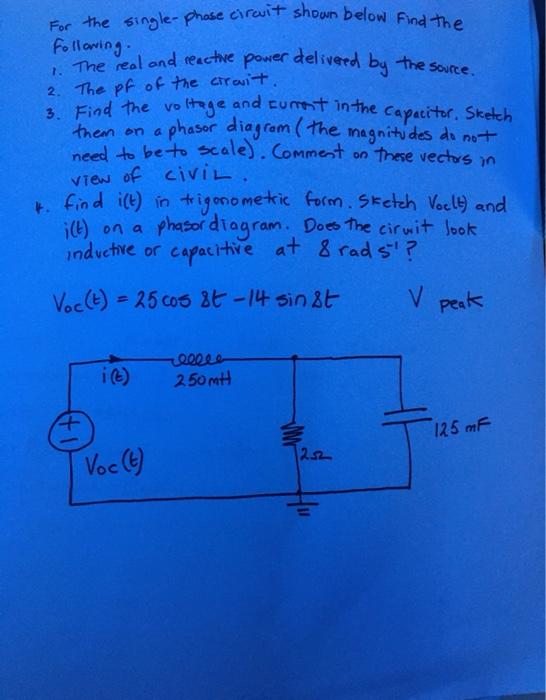 For the single-phase circuit shown below Find the
following.
1. The real and reactive power delivered by the source.
2. The pf of the circuit.
3. Find the voltage and current in the capacitor. Sketch
them on a phasor diagram (the magnitudes do not
need to be to scale). Comment on these vectors in
view of CIVIL.
4. find i(t) in trigonometric form. Sketch Voc(t) and
i(t) on a phasor diagram. Does the circuit look
inductive or capacitive at 8 rad s⁻¹?
Voc(t) = 25 cos 8t - 14 sin 8t V peak
i(t) 250mH
+
125 mF
2Ω
Voc(t)